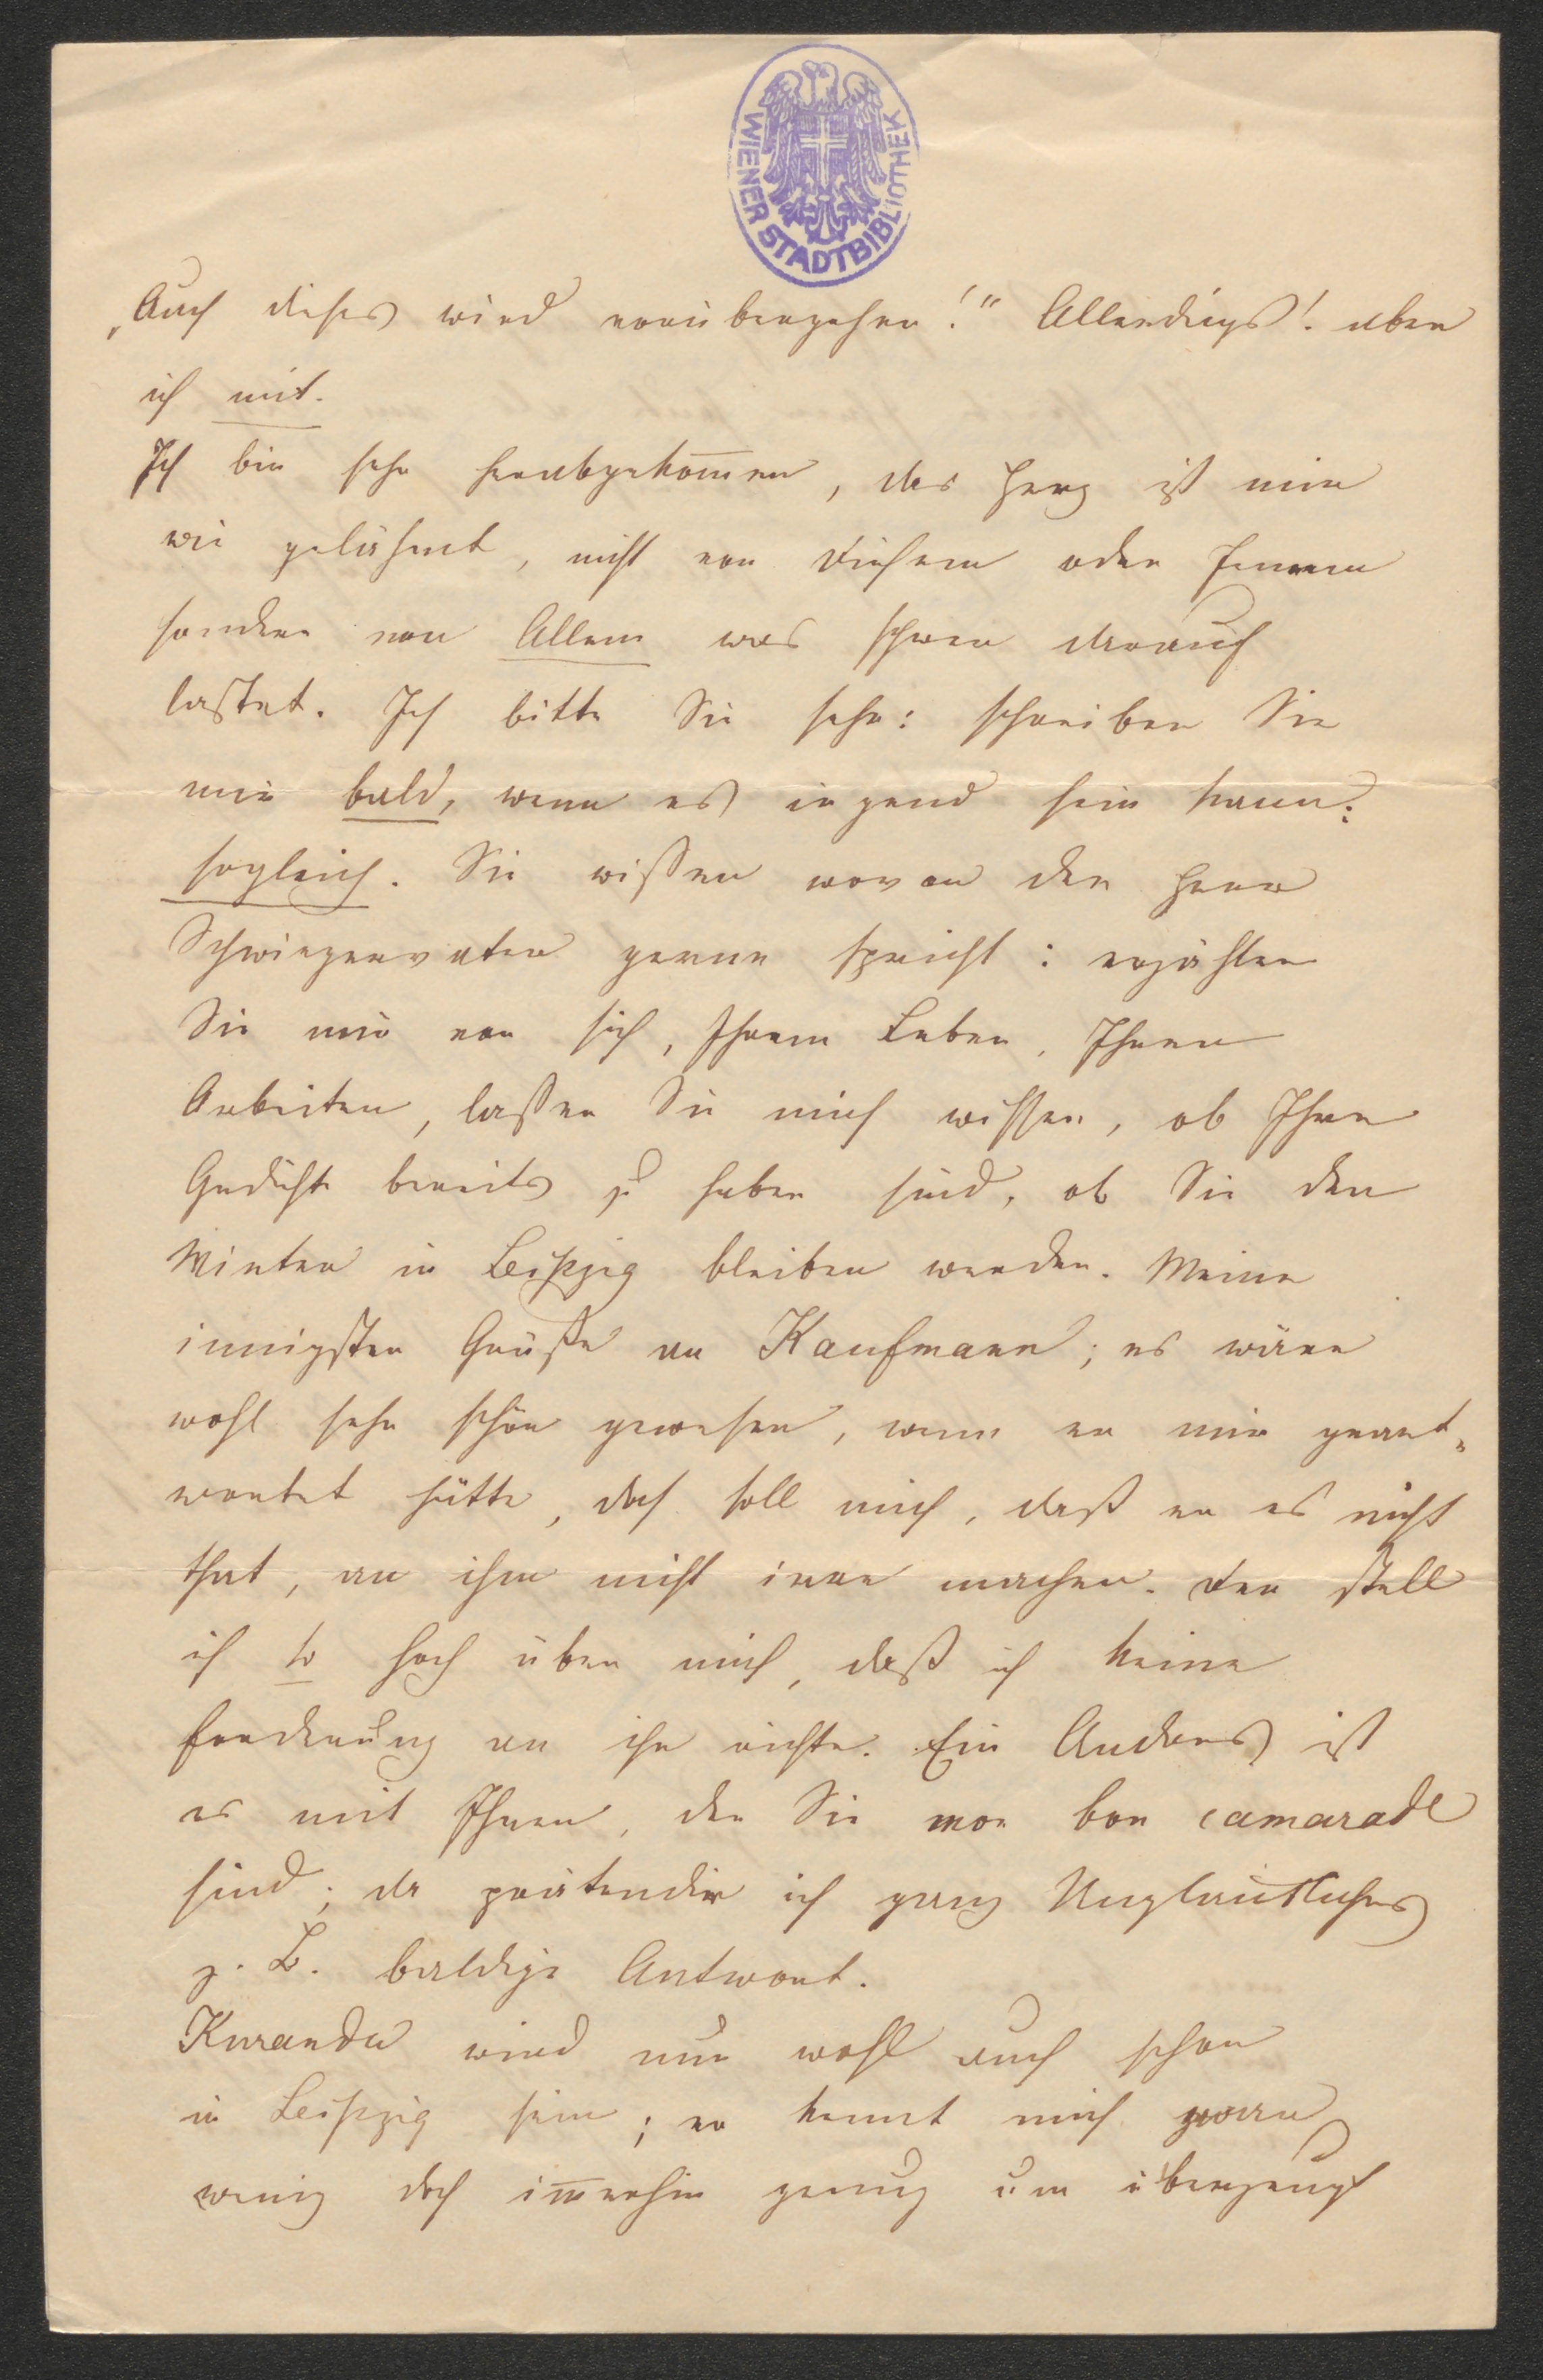 WIENER STADTBIBLIOTHEK
„Auch dieses wird vorübergehen!“ Allerdings! aber
ich mit.
Ich bin sehr herabgekom̅en, das Herz ist mir
wie gelähmt, nicht von Diesem oder Jenem
sondern von Allem was schwer darauf
lastet. Ich bitte Sie sehr: schreiben Sie
mir bald, wenn es irgend sein kann:
sogleich. Sie wißen wovon der Herr
Schwiegervater gerne spricht: erzählen
Sie mir von sich, Ihrem Leben, Ihren
Arbeiten, laßen Sie mich wissen, ob Ihre
Gedichte bereits zu haben sind, ob Sie den
Winter in Leipzig bleiben werden. Meine
innigsten Grüße an Kaufmann; es wäre
wohl sehr schön gewesen, wenn er mir geant-
wortet hätte, doch soll mich, daß er es nicht
that, an ihm nicht irre machen. Den stell
ich so hoch über mich, daß ich keine
Forderung an ihn richte. Ein Anderes ist
es mit Ihnen, der Sie mon bon camarade
sind; da prätendir ich ganz Unglaubliches
z. B. baldige Antwort.
Kuranda wird nun wohl auch schon
in Leipzig sein; er kennt mich zwar
wenig doch im̅erhin genug um überzeugt